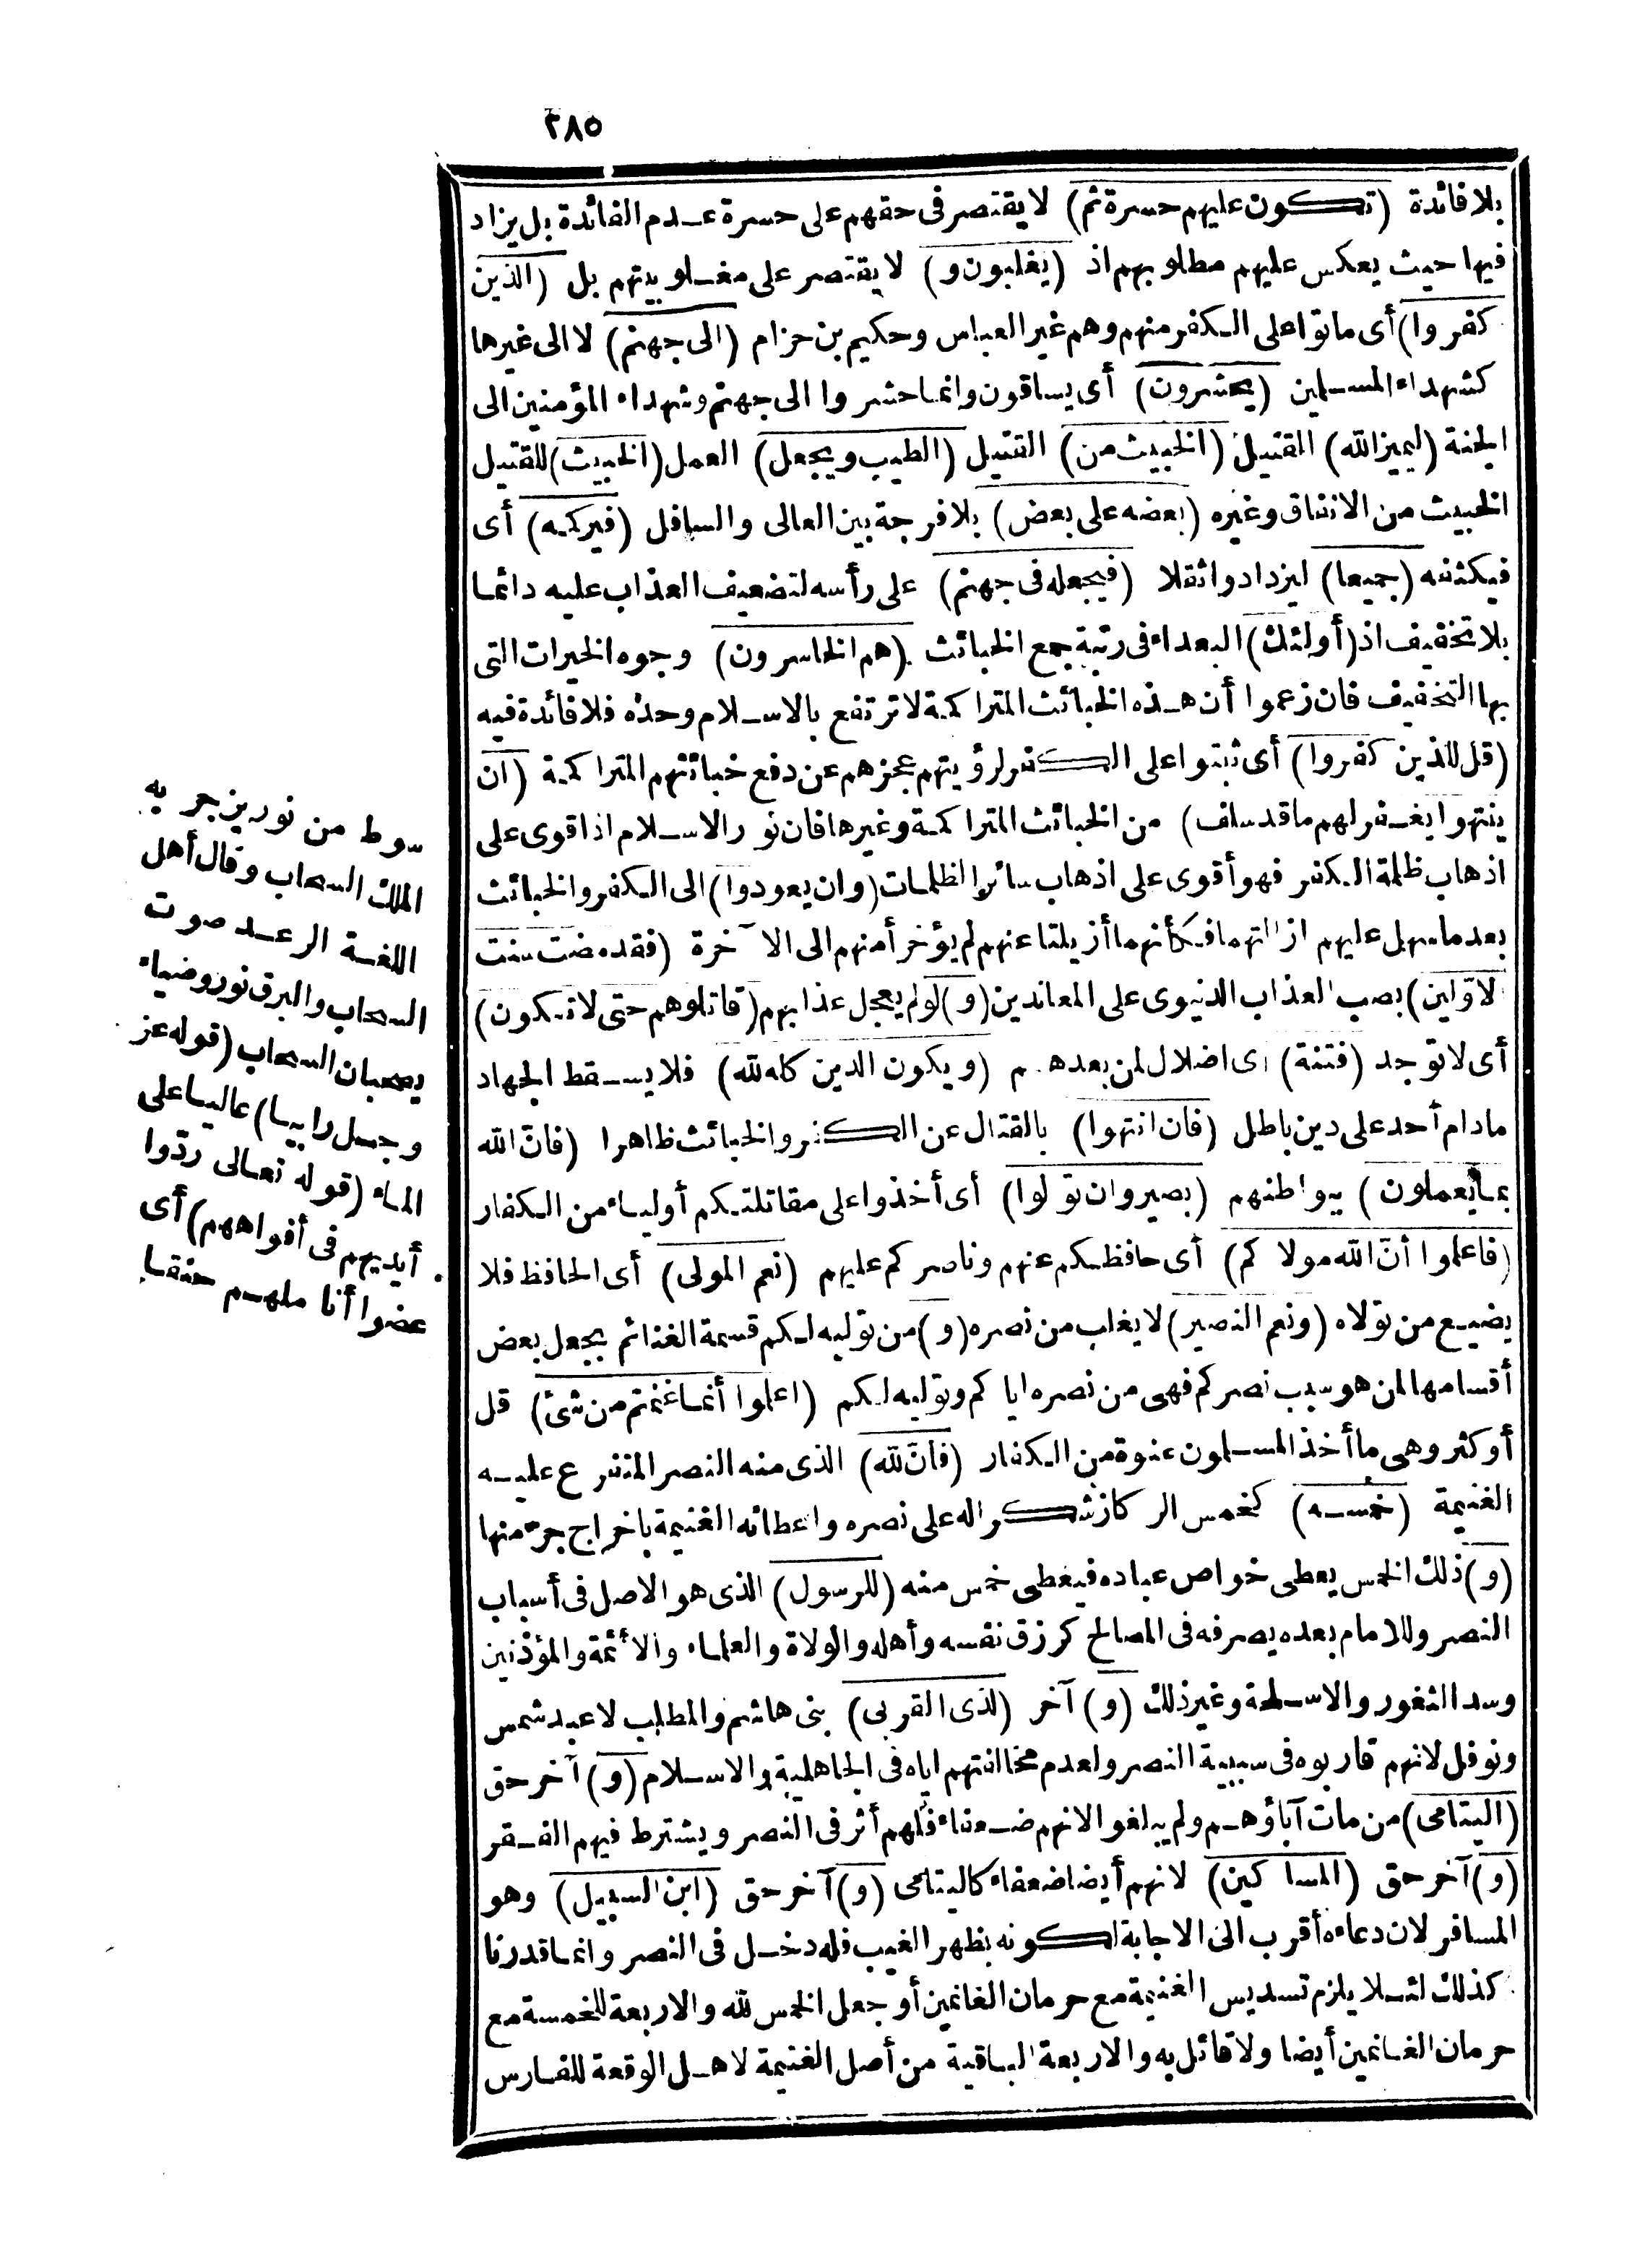 ٢٨٥
بلا فائدة (تكون عليهم حسرة ثم) لا يقتصر فى حقهم على حسرة عدم الفائدة بل يزاد
فيها حيث يعكس عليهم مطلوبهم اذ (يغلبون و) لا يقتصر على مغلوبيتهم بل (الذين
كفروا) أى ماتوا على الكفر منهم وهم غير العباس وحكيم بن حزام (الى جهنم) لا الى غيرها
كشهداء المسلمين (يحشرون) أى يساقون وانما حشروا الى جهنم وشهداء المؤمنين الى
الجنة (ليميز الله) القتيل (الخبيث من) القتيل (الطيب ويجعل) العمل (الخبيث) للقتيل
الخبيث من الانفاق وغيره (بعضه على بعض) بلا فرجة بين العالى والسافل (فيركمه) أى
فيكثفه (جميعا) ليزدادوا ثقلا (فيجعله فى جهنم) على رأسه لتضعيف العذاب عليه دائما
بلا تخفيف اذ (أولئك) البعداء فى رتبة جمع الخبائث (هم الخاسرون) وجوه الخيرات التى
بها التخفيف فان زعموا أن هذه الخبائث المتراكمة لا ترتفع بالاسلام وحده فلا فائدة فيه
(قل للذين كفروا) أى ثبتوا على الكفر لرؤيتهم عجزهم عن دفع خبائثهم المتراكمة (ان
ينتهوا يغفر لهم ما قد سلف) من الخبائث المتراكمة وغيرها فان نور الاسلام اذا قوى على
اذهاب ظلمة الكفر فهو أقوى على اذهاب سائر الظلمات (وان يعودوا) الى الكفر والخبائث
بعد ما سهل عليهم ازالتهما فكأنهما أزيلتا عنهم لم يؤخر أمنهم الى الآخرة (فقد مضت سنت
الاولين) بصب العذاب الدنيوى على المعاندين (و) لو لم يعجل عذابهم (قاتلوهم حتى لا تكون)
أى لا توجد (فتنة) أى اضلال لمن بعدهم (ويكون الدين كله لله) فلا يسقط الجهاد
مادام أحد على دين باطل (فان انتهوا) بالقتال عن الكفر والخبائث ظاهرا (فان الله
بما يعملون) ببواطنهم (بصير وان تولوا) أى أخذوا على مقاتلتكم أولياء من الكفار
(فاعلموا أن الله مولاكم) أى حافظكم عنهم وناصركم عليهم (نعم المولى) أى الحافظ فلا
يضيع من تولاه (ونعم النصير) لا يغلب من نصره (و) من توليه لكم قسمة الغنائم بجعل بعض
أقسامها لمن هو سبب نصركم فهى من نصره اياكم وتوليه لكم (اعلموا أنما غنمتم من شئ) قل
أو كثر وهى ما أخذ المسلمون عنوة من الكفار (فان لله) الذى منه النصر المتفرع عليه
الغنيمة (خمسه) كخمس الركاز شكرا له على نصره واعطائه الغنيمة باخراج جزء منها
(و) ذلك الخمس يعطى خواص عباده فيعطى خمس منه (للرسول) الذى هو الاصل فى أسباب
النصر وللامام بعده يصرفه فى المصالح كرزق نفسه وأهله والولاة والعلماء والائمة والمؤذنين
وسد الثغور والاسلحة وغير ذلك (و) آخر (لذى القربى) بنى هاشم والمطلب لا عبد شمس
ونوفل لانهم قاربوه فى سببية النصر ولعدم مخالفتهم اياه فى الجاهلية والاسلام (و) آخر حق
(اليتامى) من مات آباؤهم ولم يبلغوا لانهم ضعفاء فلهم أثر فى النصر ويشترط فيهم الفقر
(و) آخر حق (المساكين) لانهم أيضا ضعفاء كاليتامى (و) آخر حق (ابن السبيل) وهو
المسافر لان دعاءه أقرب الى الاجابة لكونه بظهر الغيب فله دخل فى النصر وانما قدرنا
كذلك لئلا يلزم تسديس الغنيمة مع حرمان الغانمين أو جعل الخمس لله والاربعة للخمسة مع
حرمان الغانمين أيضا ولا قائل به والاربعة الباقية من أصل الغنيمة لاهل الوقعة للفارس
سوط من نور يزجر به
الملك السحاب وقال أهل
اللغة الرعد صوت
السحاب والبرق نور وضياء
يصحبان السحاب (قوله عز
وجل رابيا) عاليا على
الماء (قوله تعالى ردوا
أيديهم فى أفواههم) أى
عضوا أناملهم حنقا